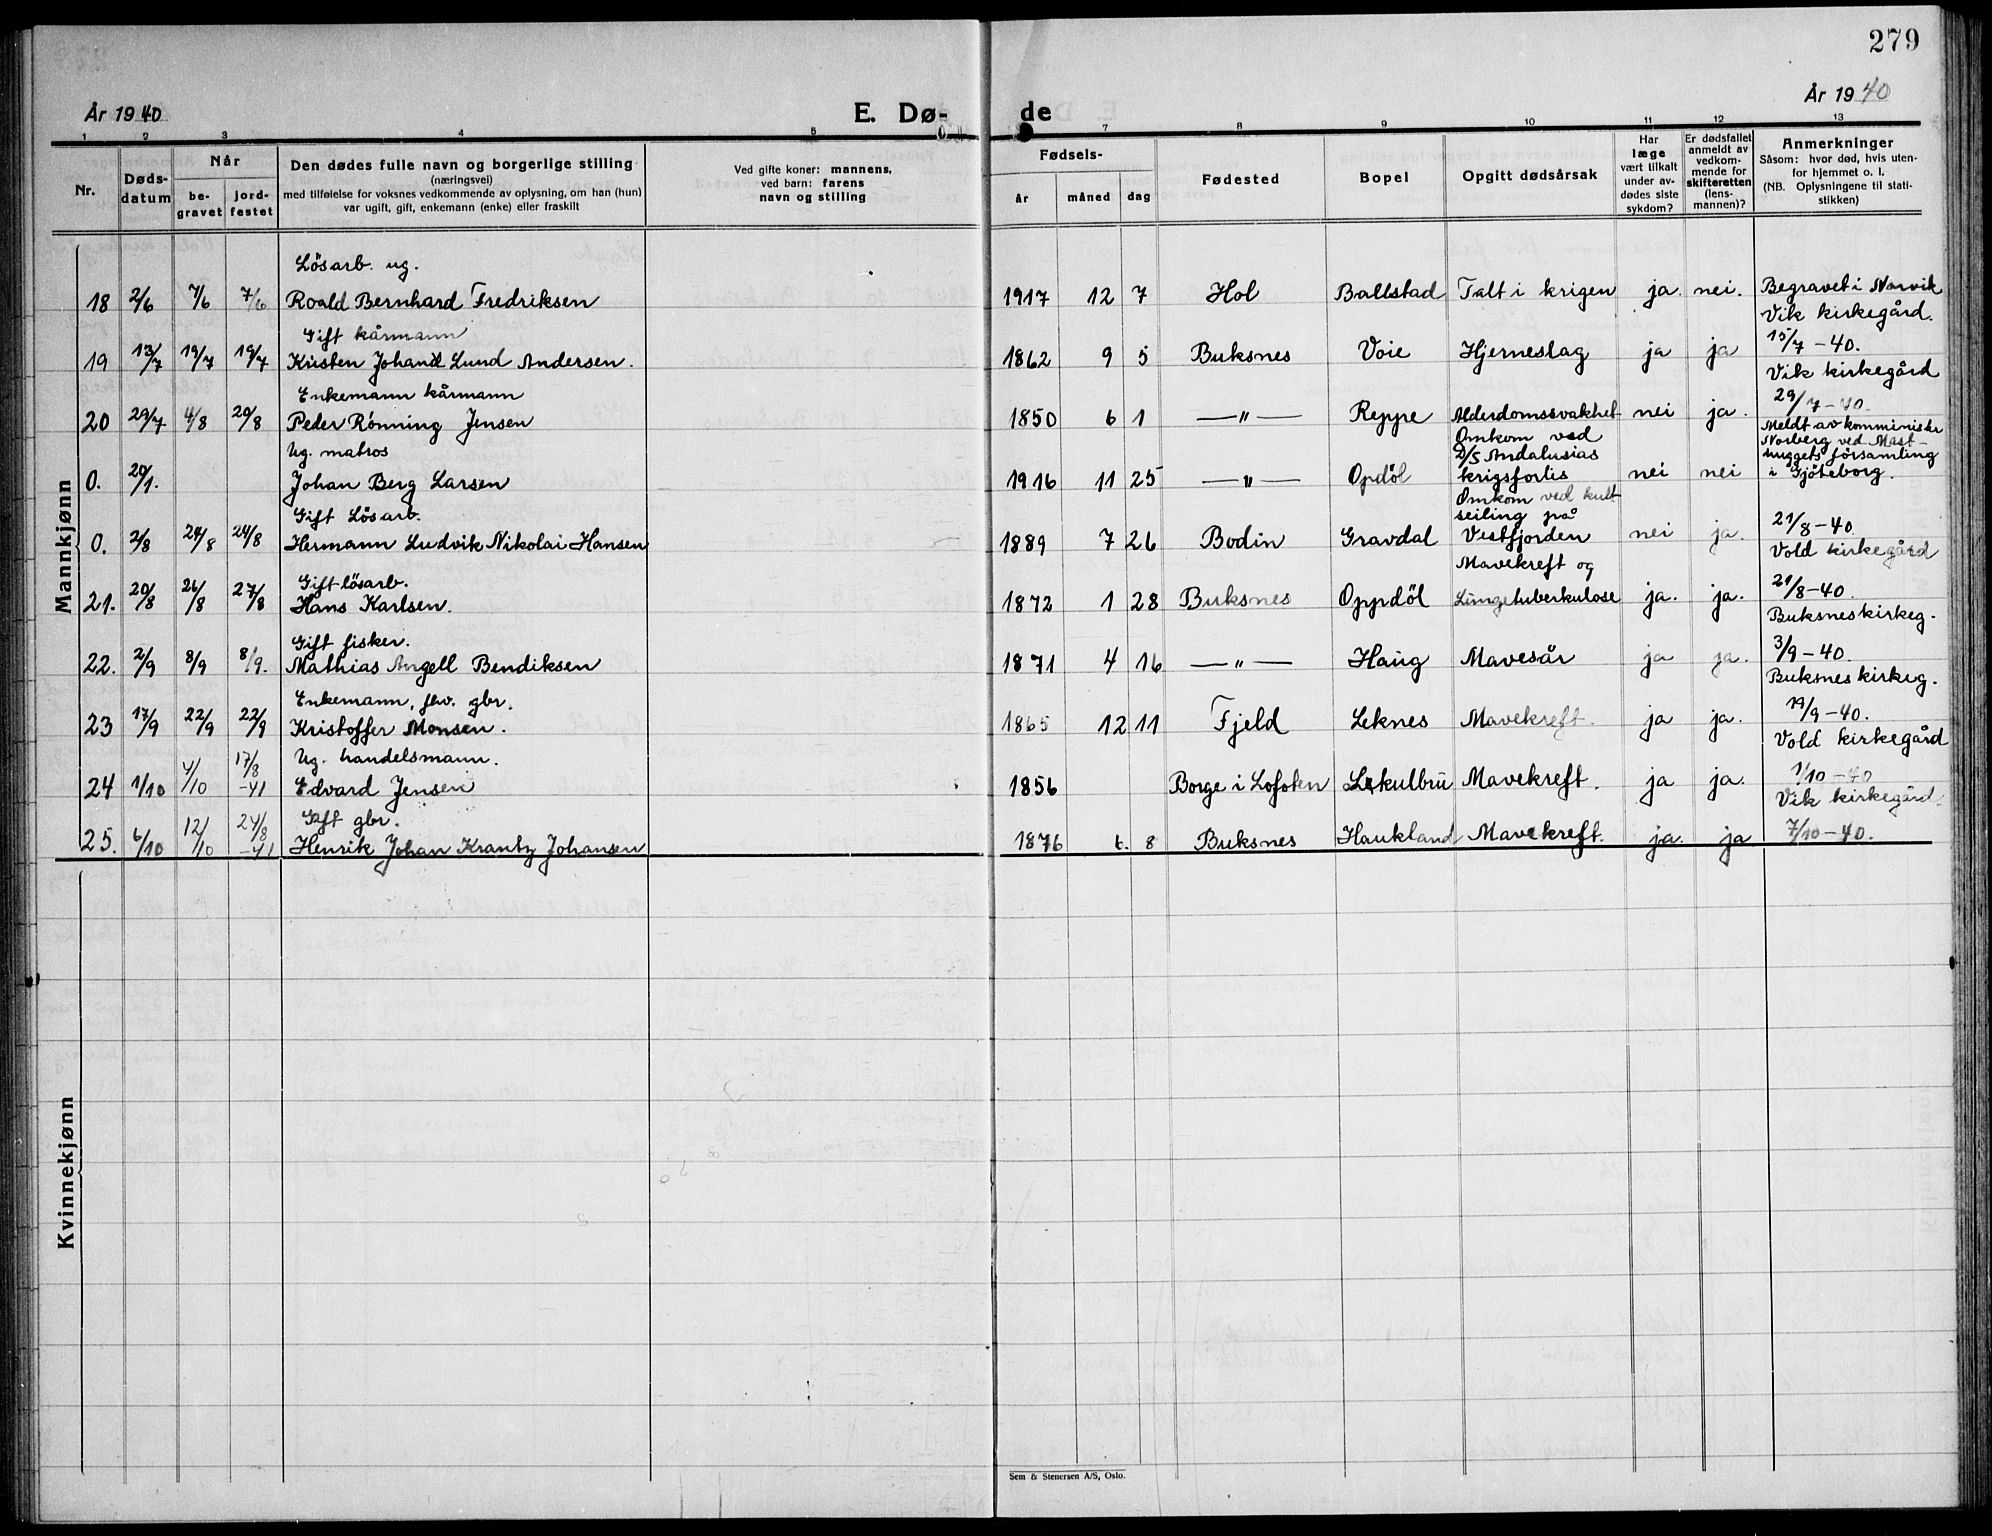 279
År 1940
E. Døde
År 1940
1 2 3 4 5 7 8 9 10 11 12 13
Nr.
Døds-
datum
Når
be-
gravet
jord-
festet
Den dødes fulle navn og borgerlige stilling
(næringsvei)
med tilføielse for voksnes vedkommende av oplysning, om han (hun)
var ugift, gift, enkemann (enke) eller fraskilt
Ved gifte koner: mannens,
ved barn: farens
navn og stilling
Fødsels-
år måned dag
Fødested
Bopel
Opgitt dødsårsak
Har
læge
vært tilkalt
under av-
dødes siste
sykdom?
Er dødsfallet
anmeldt av
vedkom-
mende for
skifteretten
(lens-
mannen)?
Anmerkninger
Såsom: hvor død, hvis uten-
for hjemmet o. l.
(NB. Oplysningene til stati-
stikken)
Mannkjønn
Løsarb. ug.
18 2/6 7/6 7/6 Roald Bernhard Fredriksen 1917 12 7 Hol Ballstad Falt i krigen ja. nei. Begravet i Narvik
Vik kirkegård.
Gift kårmann
19 13/7 19/7 19/7 Kristen Johan Lund Andersen. 1862 9 5 Buksnes Voie Hjerneslag ja ja 15/7 -40.
Vik kirkegård
Enkemann kårmann
20 29/7 4/8 20/8 Peder Rønning Jensen 1850 6 1 —"— Reppe Alderdomssvakhet nei ja. 29/7-40.
Ug. matros
O. 20/1. Johan Berg Larsen 1916 11 25 —"— Opdøl
Omkom ved
D/S Andalusias
krigsforlis
nei nei
Meldt av komminister
Norberg ved Mast-
huggets församling
i Gjöteborg.
Gift Løsarb.
O. 2/8 24/8 24/8 Hermann Ludvik Nikolai Hansen 1889 7 26 Bodin Gravdal
Omkom ved kult
seiling på
Vestfjorden
nei ja. 21/8-40
Vold kirkegård
Gift løsarb.
21. 20/8 26/8 27/8 Hans Karlsen. 1872 1 28 Buksnes Oppdøl
Mavekreft og
Lungetuberkulose
ja. ja. 21/8-40.
Buksnes kirkeg.
Gift fisker.
22. 2/9 8/9 8/9. Mathias Angell Bendiksen 1871 4 16 —"— Haug Mavesår ja ja. 3/9-40.
Buksnes kirkeg.
Enkemann, fhv. gbr.
23 17/9 22/9 22/9 Kristoffer Monsen. 1865 12 11 Fjeld Leknes Mavekreft. ja ja. 19/9-40.
Vold kirkegård
Ug. handelsmann.
24 1/10 4/10 17/8 -41 Edvard Jensen 1856 Borge i Lofoten Lekulbru Mavekreft. ja ja. 1/10-40
Vik kirkegård.
Gift gbr.
25. 6/10 12/10 24/8 -41 Henrik Johan Krantz Johansen 1876 6. 8 Buksnes Haukland Mavekreft. ja. ja 7/10-40.
Kvinnekjønn
Sem & Stenersen A/S, Oslo.